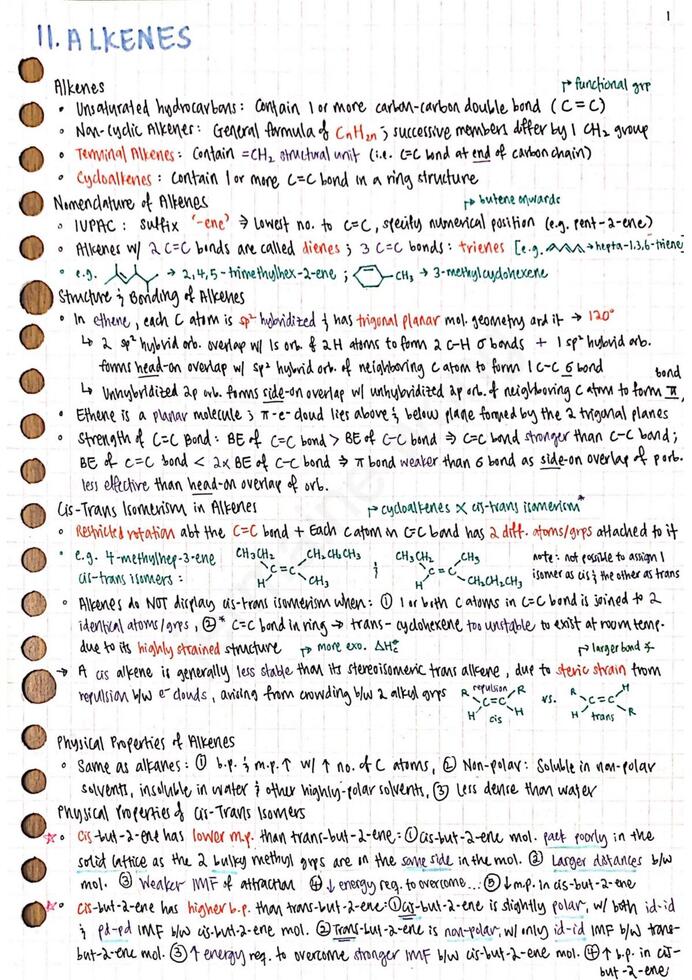 1
11. ALKENES
Alkenes
↱ functional grp
• Unsaturated hydrocarbons: Contain 1 or more carbon-carbon double bond (C=C)
• Non-Cyclic Alkenes: General formula of CnH2n ; successive members differ by 1 CH2 group
• Terminal Alkenes: Contain =CH2 structural unit (i.e. C=C bond at end of carbon chain)
• Cycloalkenes: Contain 1 or more C=C bond in a ring structure
Nomenclature of Alkenes
↱ butene onwards
• IUPAC: Suffix '-ene' ⇒ Lowest no. to C=C, specify numerical position (e.g. pent-2-ene)
• Alkenes w/ 2 C=C bonds are called dienes ; 3 C=C bonds: trienes [e.g. → hepta-1,3,6-triene]
• e.g. → 2,4,5-trimethylhex-2-ene ; -CH3 → 3-methylcyclohexene
Structure & Bonding of Alkenes
• In ethene, each C atom is sp² hybridized & has trigonal planar mol. geometry ard it → 120°
↳ 2 sp² hybrid orb. overlap w/ 1s orb. of 2 H atoms to form 2 C-H σ bonds + 1 sp² hybrid orb.
forms head-on overlap w/ sp² hybrid orb. of neighboring C atom to form 1 C-C σ bond
↳ Unhybridized 2p orb. forms side-on overlap w/ unhybridized 2p orb. of neighboring C atom to form π bond
• Ethene is a planar molecule ; π-e- cloud lies above & below plane formed by the 2 trigonal planes
• Strength of C=C Bond: BE of C=C bond > BE of C-C bond ⇒ C=C bond stronger than C-C bond ;
BE of C=C bond < 2x BE of C-C bond ⇒ π bond weaker than σ bond as side-on overlap of p orb.
less effective than head-on overlap of orb.
Cis-Trans Isomerism in Alkenes
↱ cycloalkenes X cis-trans isomerism*
• Restricted rotation abt the C=C bond + Each C atom in C=C bond has 2 diff. atoms/grps attached to it
• e.g. 4-methylhep-3-ene
cis-trans isomers:
CH3CH2 CH2CH2CH3
C=C
H CH3
&
CH3CH2 CH3
C=C
H CH2CH2CH3
note: not possible to assign 1
isomer as cis & the other as trans
• Alkenes do NOT display cis-trans isomerism when: ① 1 or both C atoms in C=C bond is joined to 2
identical atoms/grps, ②* C=C bond in ring → trans-cyclohexene too unstable to exist at room temp.
due to its highly strained structure
↱ more exo. ΔHc
↱ larger bond ∡
→ A cis alkene is generally less stable than its stereoisomeric trans alkene, due to steric strain from
repulsion b/w e- clouds, arising from crowding b/w 2 alkyl grps
repulsion
R R
C=C
H H
cis
vs.
R H
C=C
H R
trans
Physical Properties of Alkenes
• Same as alkanes: ① b.p. & m.p. ↑ w/ ↑ no. of C atoms, ② Non-polar: Soluble in non-polar
solvents, insoluble in water & other highly-polar solvents, ③ Less dense than water
Physical Properties of Cis-Trans Isomers
☆• Cis-but-2-ene has lower m.p. than trans-but-2-ene: ① Cis-but-2-ene mol. pack poorly in the
solid lattice as the 2 bulky methyl grps are on the same side in the mol. ② Larger distances b/w
mol. ③ Weaker IMF of attraction ④ ↓ energy req. to overcome... ⑤ ↓ m.p. in cis-but-2-ene
☆• Cis-but-2-ene has higher b.p. than trans-but-2-ene: ① Cis-but-2-ene is slightly polar, w/ both id-id
& pd-pd IMF b/w cis-but-2-ene mol. ② Trans-but-2-ene is non-polar, w/ only id-id IMF b/w trans-
but-2-ene mol. ③ ↑ energy req. to overcome stronger IMF b/w cis-but-2-ene mol. ④ ↑ b.p. in cis-
but-2-ene